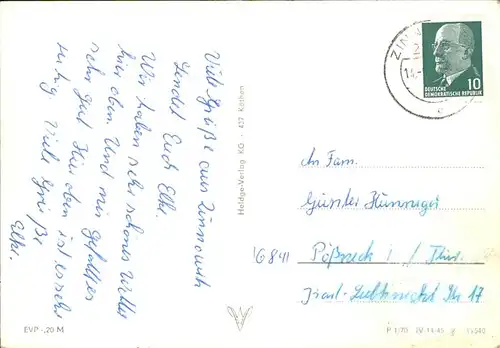 Viele Grüße aus Zinnowitz
sendet Euch Elke.
Wir haben sehr schönes Wetter
hier oben. Und mir gefällt es
sehr gut. Hier oben ist es sehr
ruhig. Viele Grüße
Elke.
EVP -,20 M
Heldge-Verlag KG · 437 Köthen
ZIN
14.
DEUTSCHE
DEMOKRATISCHE REPUBLIK
10
An Fam.
Günter
6841 Pößneck i / Thür.
Karl-Liebknecht Str 17
P 1/70 IV-14-45